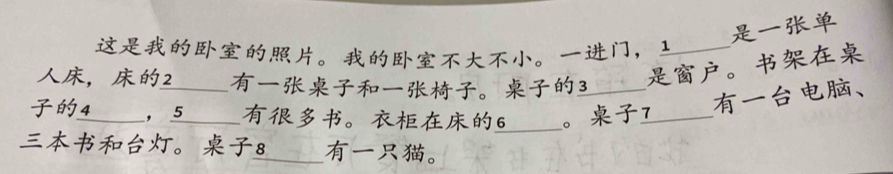 这是我的卧室的照片。我的卧室不大不小。一进门，1______是一张单
人床，床的2______有一张桌子和一张椅子。桌子的3______是窗户。书架在桌
子的4______，5______有很多书。衣柜在床的6______。桌子7______有一台电脑、
三本书和台灯。桌子8______有一只猫。